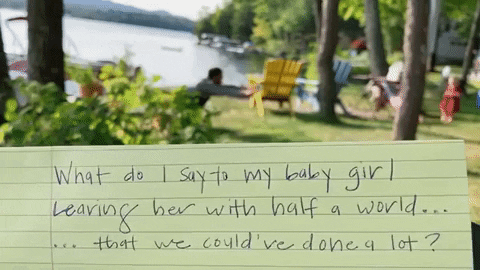 What do I say to my baby girl
Leaving her with half a world...
... that we could've done a lot?